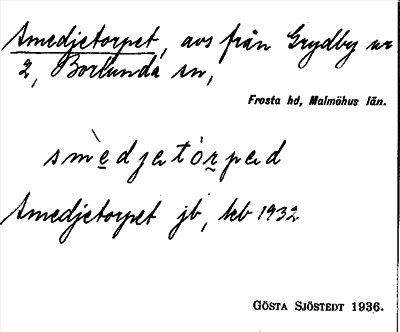 Smedjetorpet, avs från Grydby nr
2, Borlunda sn,
Frosta hd, Malmöhus län.
smèdjatòrpad
Smedjetorpet jb, kb 1932
GÖSTA SJÖSTEDT 1936.